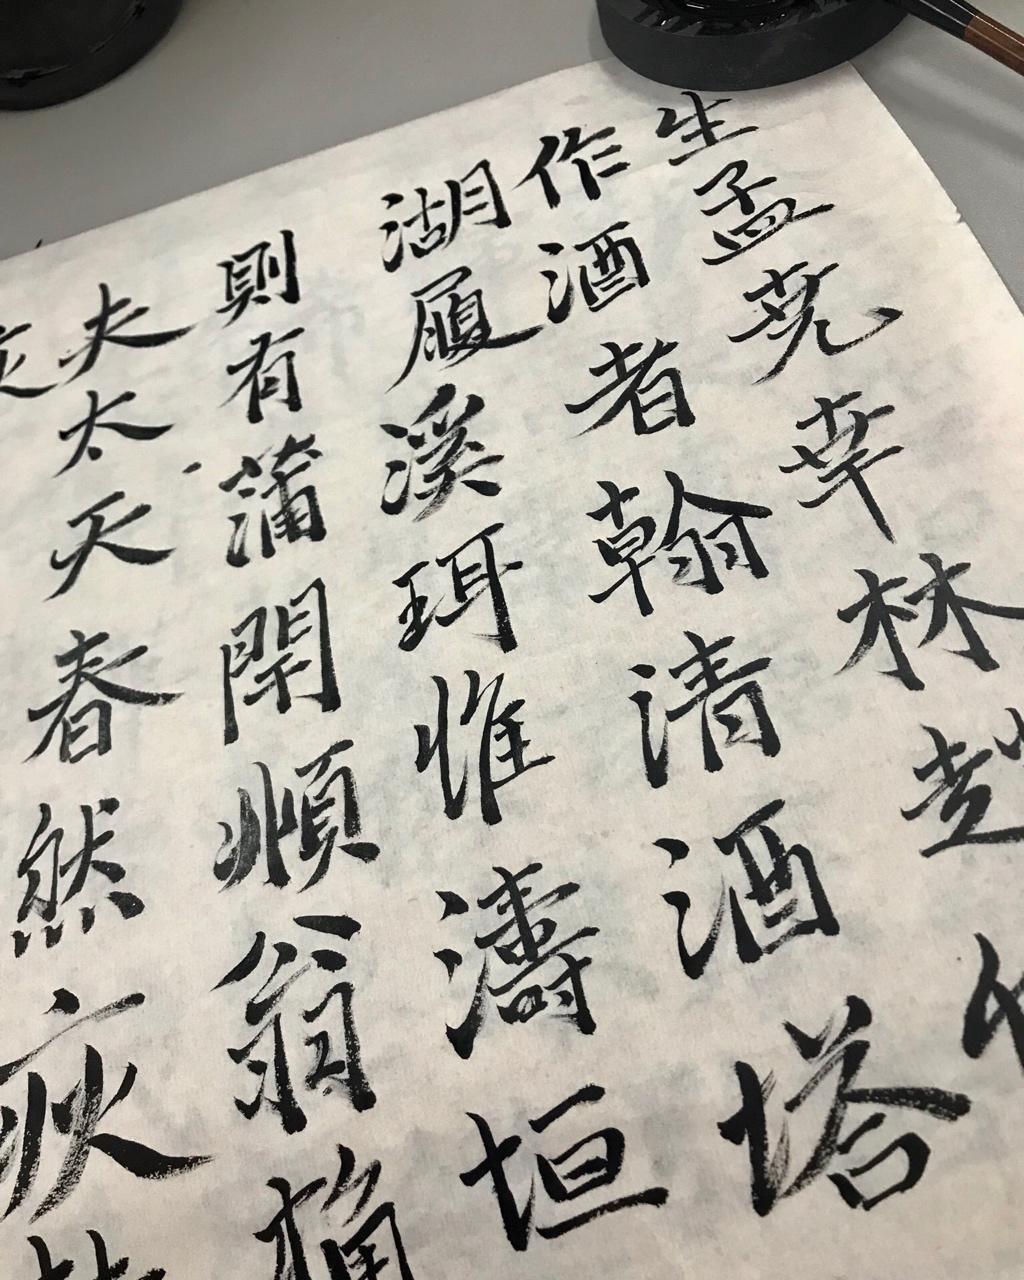 生孟幸林
作酒者翰清酒塔
湖履溪珥惟濤垣
則有蒲閑順翁
夫太天春然